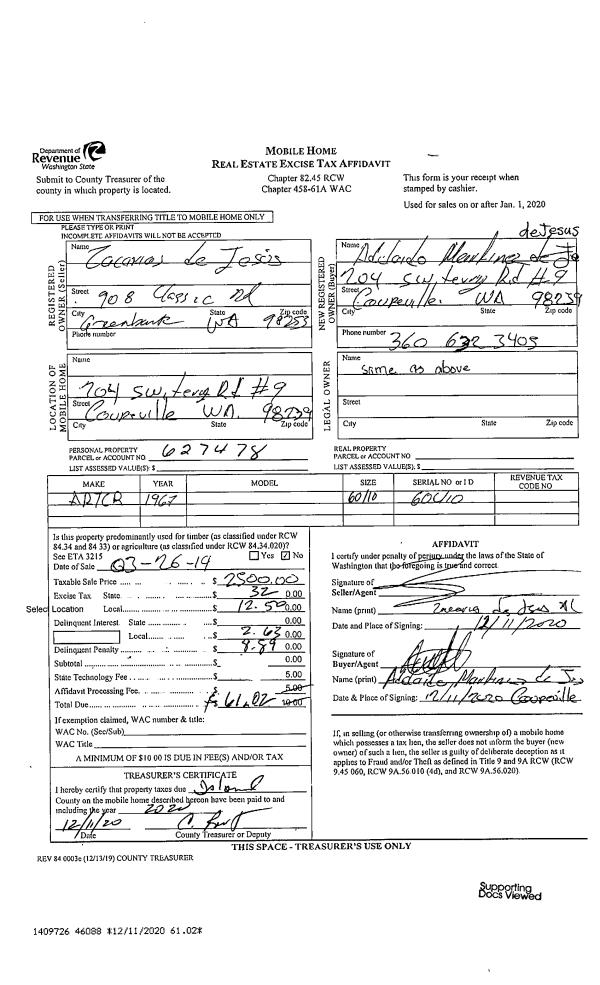 Department of
Revenue
Washington State
MOBILE HOME
REAL ESTATE EXCISE TAX AFFIDAVIT
Submit to County Treasurer of the
county in which property is located.
Chapter 82.45 RCW
Chapter 458-61A WAC
This form is your receipt when
stamped by cashier.
Used for sales on or after Jan. 1, 2020
FOR USE WHEN TRANSFERRING TITLE TO MOBILE HOME ONLY
PLEASE TYPE OR PRINT
INCOMPLETE AFFIDAVITS WILL NOT BE ACCEPTED
REGISTERED
OWNER (Seller)
Name
de Jesus
Street 908 Classic Rd
City State Zip code
Greenbank WA 98253
Phone number
NEW REGISTERED
OWNER (Buyer)
deJesus
Name Adelaido Martinez de Je
704 SW, terry Rd #9
Street
Coupeville WA 98239
City State Zip code
Phone number 360 632 3405
LOCATION OF
MOBILE HOME
Name
704 SW, terry Rd #9
Street
Coupeville WA. 98239
City State Zip code
LEGAL OWNER
Name
same as above
Street
City State Zip code
PERSONAL PROPERTY
PARCEL or ACCOUNT NO. 627478
LIST ASSESSED VALUE(S): $
REAL PROPERTY
PARCEL or ACCOUNT NO
LIST ASSESSED VALUE(S): $
MAKE YEAR MODEL SIZE SERIAL NO or I D REVENUE TAX CODE NO
ARTCR 1967 60/10 60U10
Is this property predominantly used for timber (as classified under RCW
84.34 and 84 33) or agriculture (as classified under RCW 84.34.020)?
See ETA 3215 Yes No
Date of Sale 03-26-19
Taxable Sale Price $ 2500.00
Excise Tax State $ 32 0.00
Select Location Local $ 12.50 0.00
Delinquent Interest State $ 0.00
Local $ 2.63 0.00
Delinquent Penalty $ 8.89 0.00
Subtotal $ 0.00
State Technology Fee $ 5.00
Affidavit Processing Fee $ 5.00
Total Due $ 61.02 10.00
If exemption claimed, WAC number & title:
WAC No. (Sec/Sub)
WAC Title
A MINIMUM OF $10 00 IS DUE IN FEE(S) AND/OR TAX
TREASURER'S CERTIFICATE
I hereby certify that property taxes due Island
County on the mobile home described hereon have been paid to and
including the year 2020
12/11/20
Date County Treasurer or Deputy
AFFIDAVIT
I certify under penalty of perjury under the laws of the State of
Washington that the foregoing is true and correct
Signature of
Seller/Agent
Name (print) de Jesus
Date and Place of Signing: 12/11/2020
Signature of
Buyer/Agent
Name (print) Adelaido Martinez de Jes
Date & Place of Signing: 12/11/2020 Coupeville
If, in selling (or otherwise transferring ownership of) a mobile home
which possesses a tax lien, the seller does not inform the buyer (new
owner) of such a lien, the seller is guilty of deliberate deception as it
applies to Fraud and/or Theft as defined in Title 9 and 9A RCW (RCW
9.45 060, RCW 9A.56 010 (4d), and RCW 9A.56.020).
THIS SPACE - TREASURER'S USE ONLY
REV 84 0003e (12/13/19) COUNTY TREASURER
Supporting
Docs Viewed
1409726 46088 *12/11/2020 61.02*